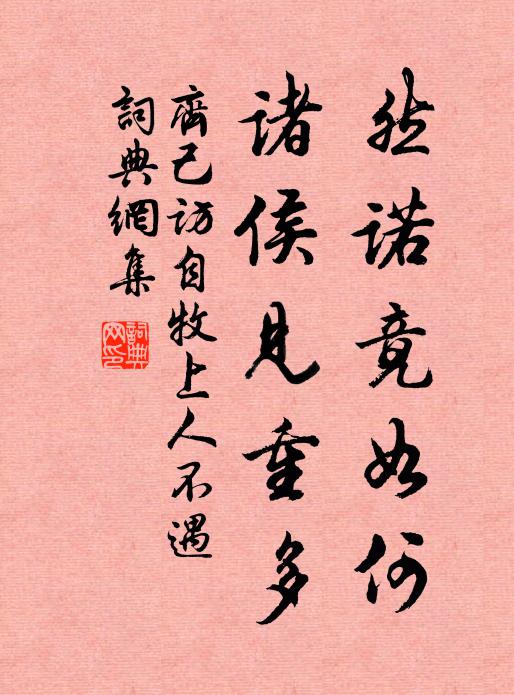 然诺竟如何
诸侯见重多
齊己訪自牧上人不遇
詞典網集
詞典網印